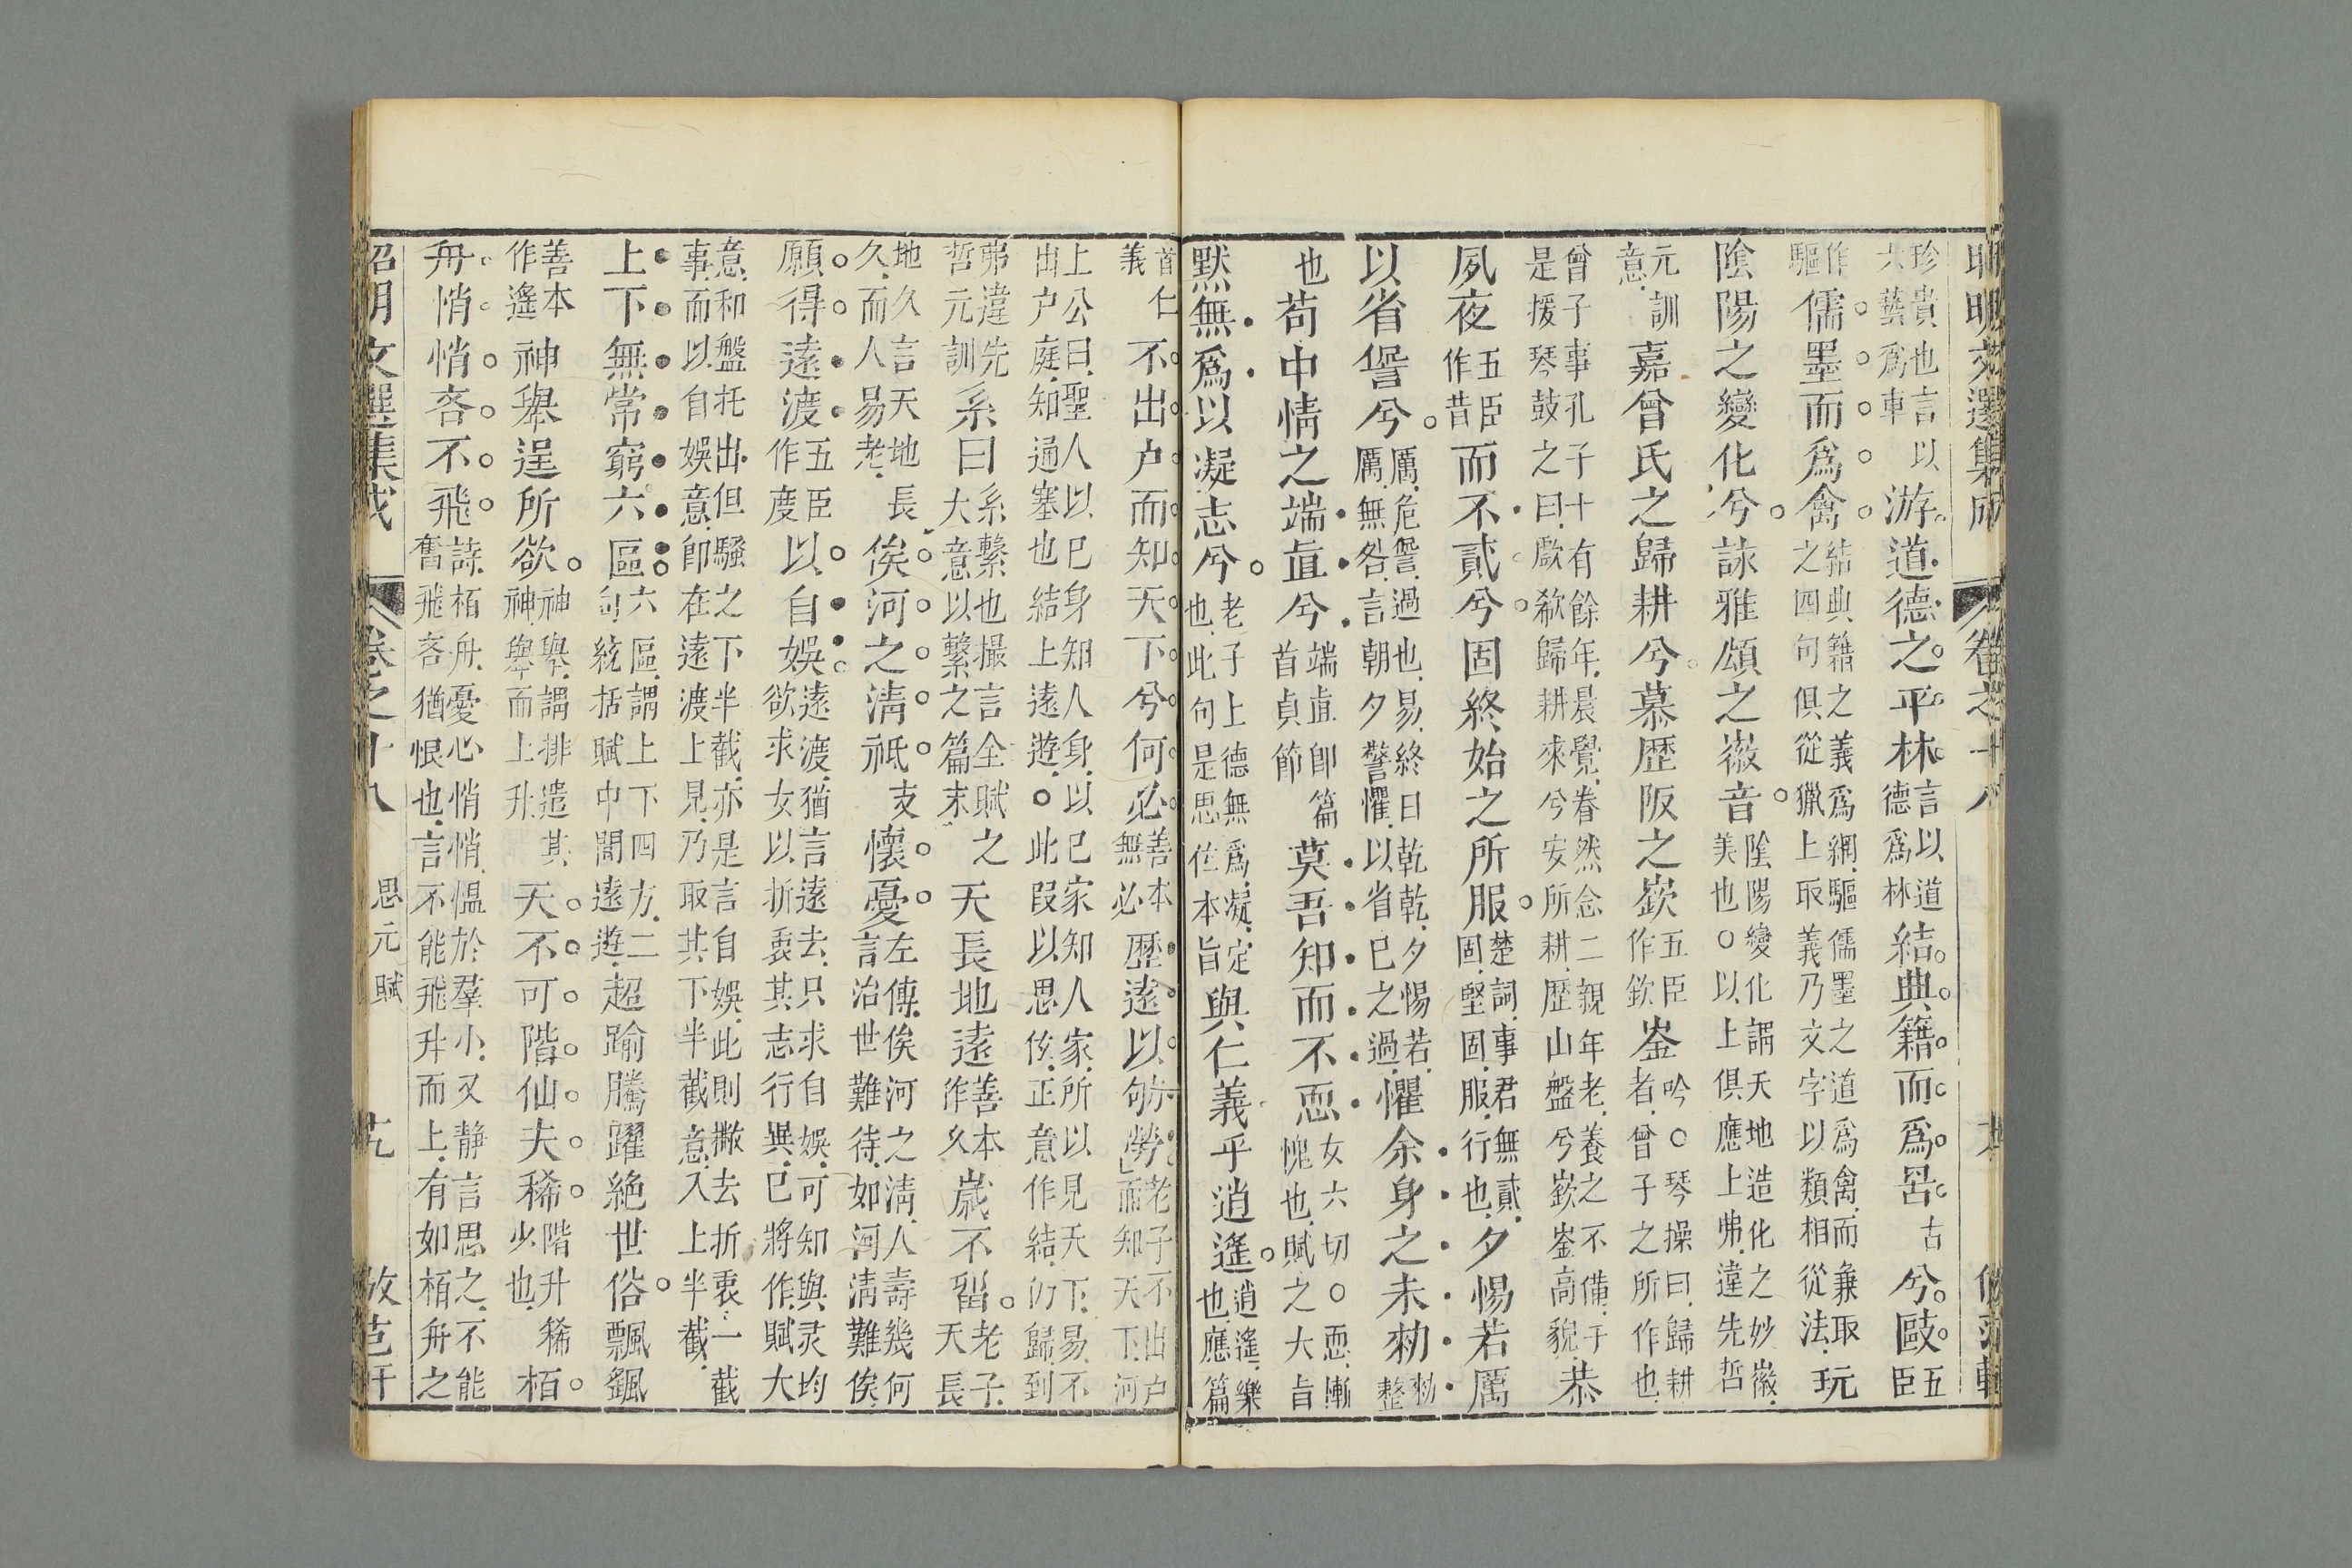 昭明文選集成 卷之十八
珍貴也言以六藝爲車游道德之平林言以道德爲林結典籍而爲罟古兮敺五臣
作驅儒墨而爲禽結典籍之義爲網驅儒墨之道爲禽而兼取之四句俱從獵上取義乃文字以類相從法玩
陰陽之變化兮詠雅頌之徽音陰陽變化謂天地造化之妙徽美也○以上俱應上弗違先哲
元訓意嘉曾氏之歸耕兮慕歴阪之嶔五臣作欽崟吟○琴操曰歸耕者曾子之所作也
曾子事孔子十有餘年晨覺眷然念二親年老養之不備于是援琴鼓之曰歔欷歸耕來兮安所耕歷山盤兮嶔崟高貌恭
夙夜五臣作昔而不貳兮固終始之所服楚詞事君無貳固堅固服行也夕惕若厲
以省諐兮厲危諐過也易終日乾乾夕惕若厲無咎言朝夕警懼以省已之過懼余身之未勑勑整
也苟中情之端直兮端直卽篇首貞節莫吾知而不恧女六切○恧慚愧也賦之大旨
默無爲以凝志兮老子上德無爲凝定也此句是思作本旨與仁義乎逍遙逍遙樂也應篇
首仁義不出户而知天下兮何必善本無必歴遠以劬勞老子不出户而知天下河
上公曰聖人以已身知人身以已家知人家所以見天下易不出户庭知通塞也結上遠遊○此叚以思正意作結仍歸到
弗違先哲元訓系曰系繫也撮言全賦之大意以繫之篇末天長地遠善本作久歲不留老子天長
地久言天地長久而人易老俟河之清祗支懷憂左傳俟河之清人壽幾何言治世難待如河清難俟
願得遠渡五臣作度以自娛遠渡猶言遠去只求自娛可知與灵均欲求女以折衷其志行異已將作賦大
意和盤托出但騷之下半截亦是言自娛此則撇去折衷一截事而以自娛意卽在遠渡上見乃取其下半截意入上半截
上下無常窮六區六區謂上下四方二句統括賦中間遠遊超踰騰躍絶世俗飄颻
善本作遙神舉逞所欲神舉謂排遣其神舉而上升天不可階仙夫稀階升稀少也栢
舟悄悄吝不飛詩栢舟憂心悄悄愠於羣小又静言思之不能奮飛吝猶恨也言不能飛升而上有如栢舟之
昭明文選集成 卷之十八 思元賦